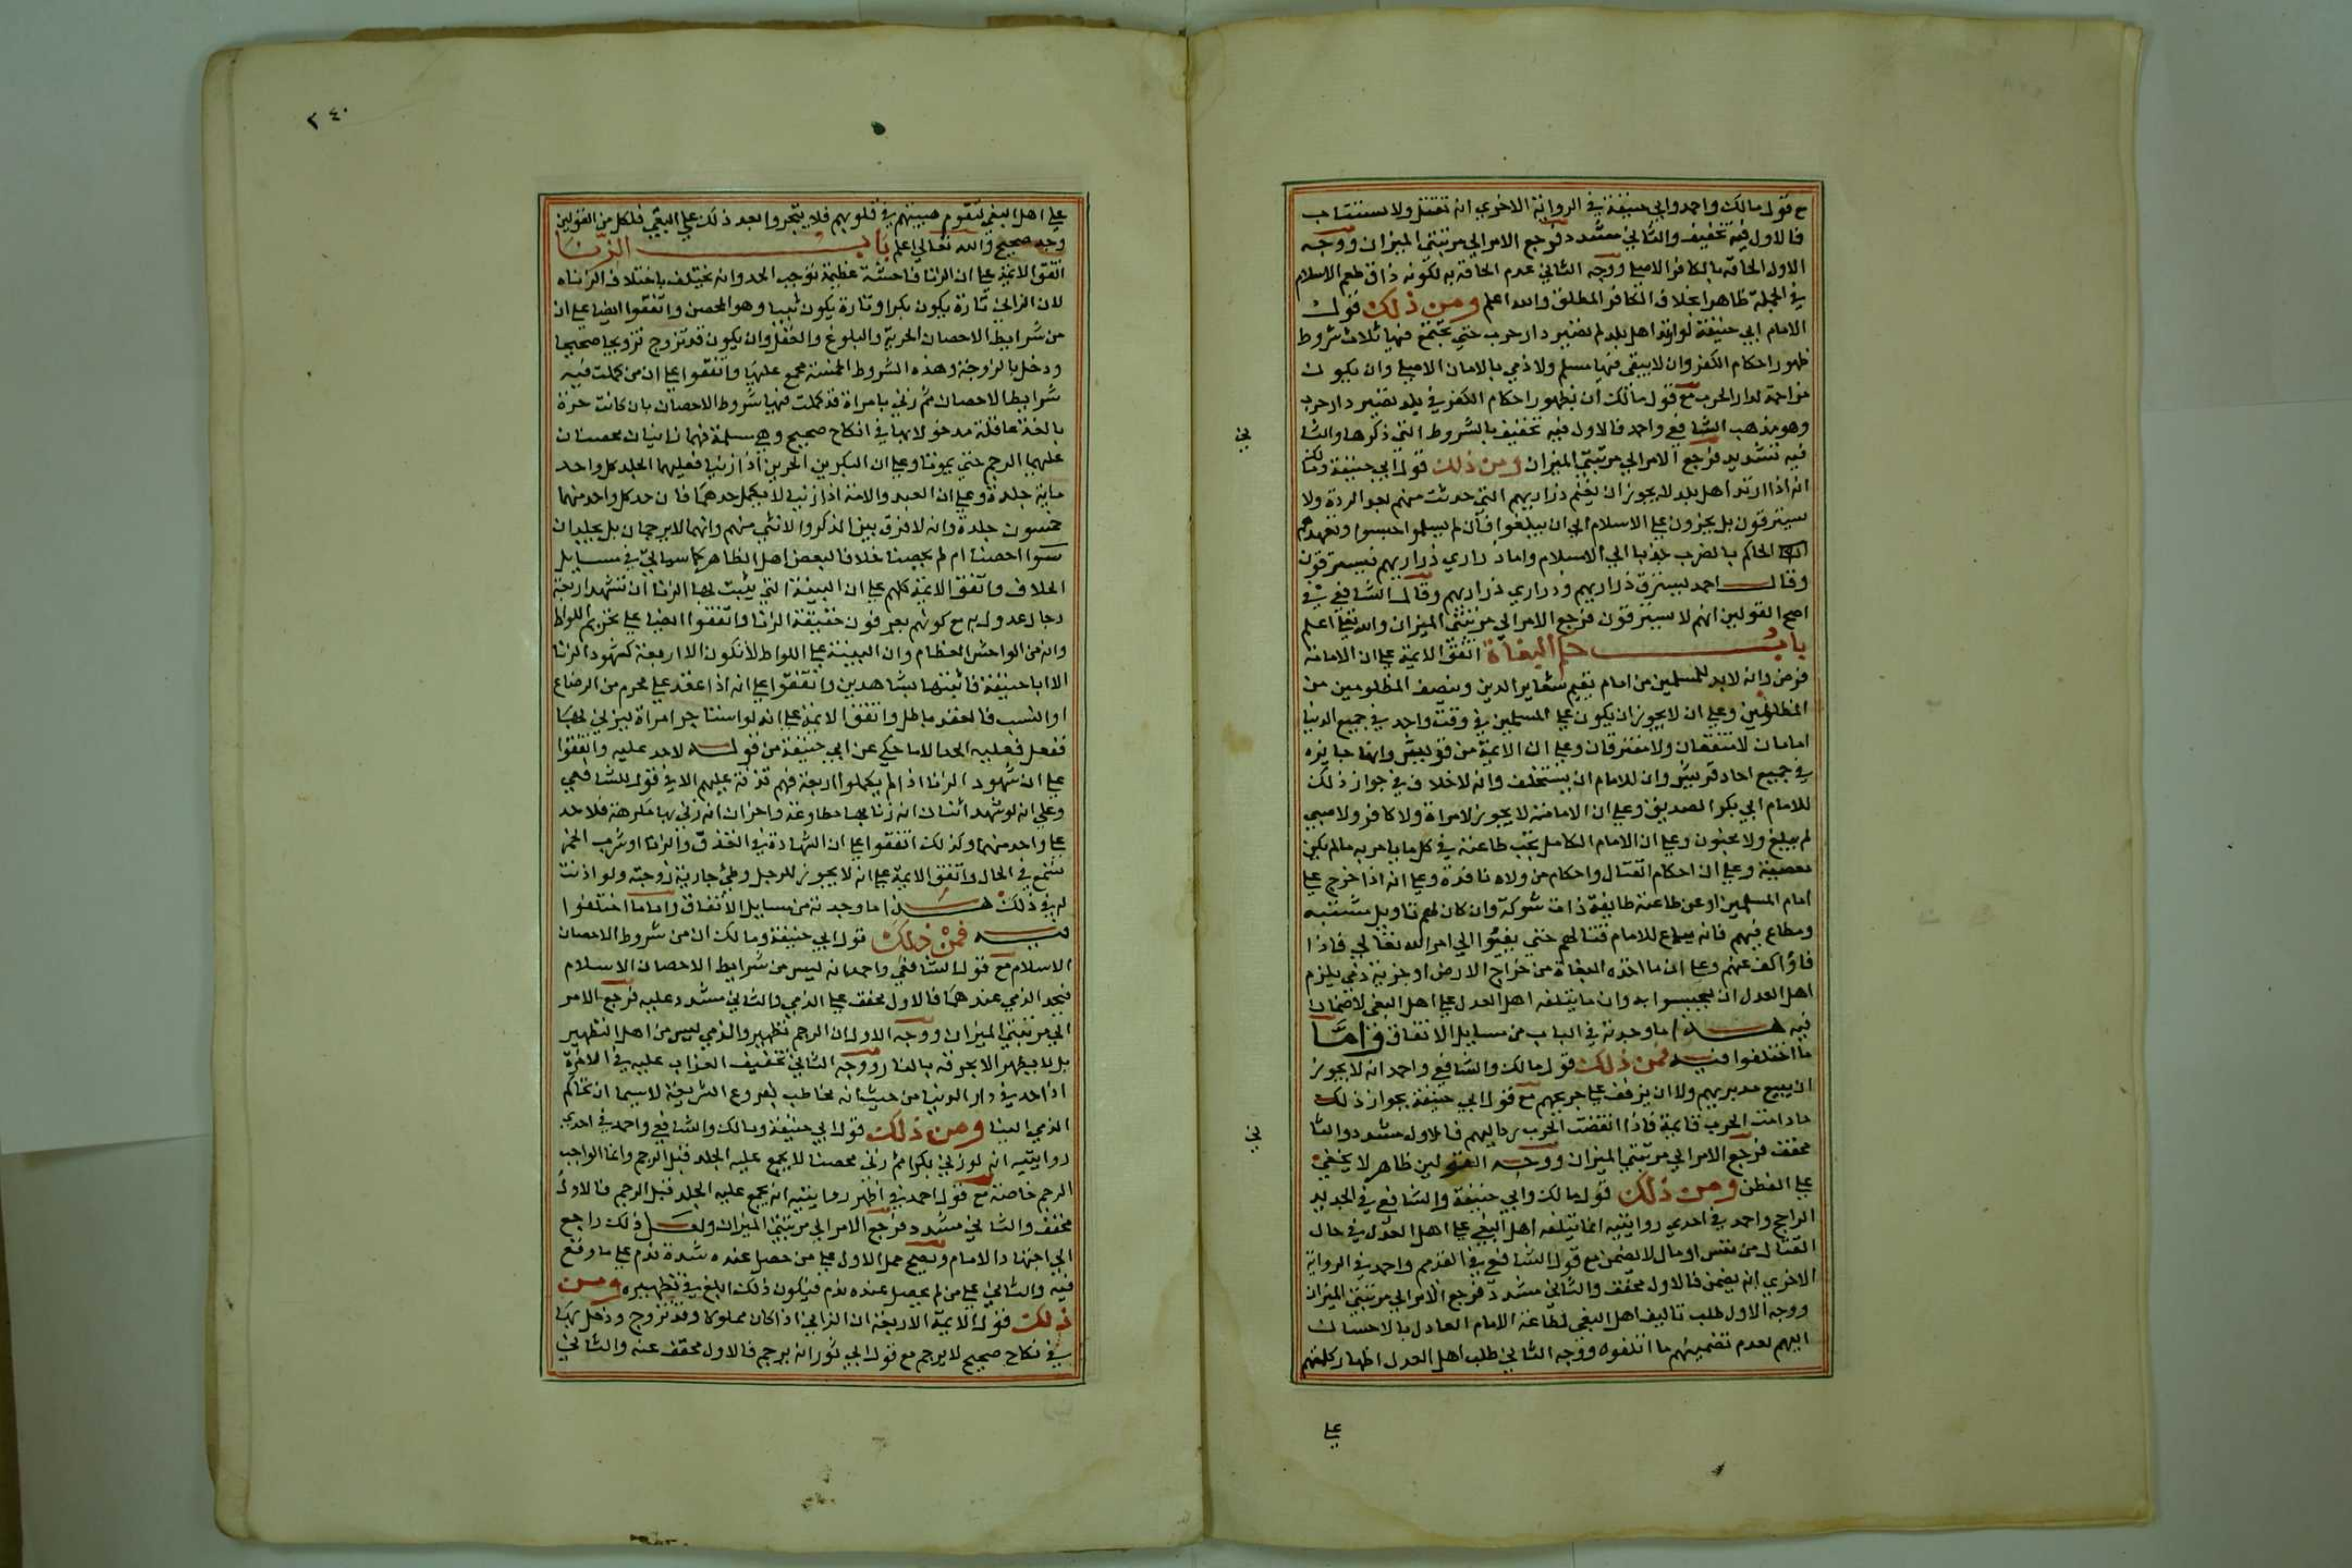 مع قول مالك واحمد وابي حنيفة في الرواية الاخري انه تقتل ولا تستتاب
فالاول فيه تخفيف والثاني مشدد فرجع الامر الي مرتبتي الميزان ووجه
الاول الحاقه بالكافر الاصلي ووجه الثاني عدم الحاقه به لكونه ذاق طعم الاسلام
في الجملة ظاهرا بخلاف الكافر المطلق والله اعلم ومن ذلك قول
الامام ابي حنيفة لو ارتد اهل بلد لم تصير دار حرب حتي يجتمع فيها ثلاث شروط
ظهور احكام الكفر وان لا يبقي فيها مسلم ولا ذمي بالامان الاصلي وان يكون
مزاحمة لدار الحرب مع قول مالك ان بظهور احكام الكفر في بلد تصير دار حرب
وهو مذهب الشافعي واحمد فالاول فيه تخفيف بالشروط التي ذكرها والثا
ني
فيه تشديد فرجع الامر الي مرتبتي الميزان ومن ذلك قول ابي حنيفة ومالك
انه اذا ارتد اهل بلد لا يجوز ان يغنم ذراريهم التي حدثت منهم بعد الردة ولا
يسترقون بل يجبرون علي الاسلام الي ان يبلغوا فان لم يسلموا حبسوا وتعهدهم
الحاكم بالضرب جذبا الي الاسلام واما ذراري ذراريهم فيسترقون
وقال احمد تسترق ذراريهم وذراري ذراريهم وقال الشافعي في
اصح القولين انهم لا يسترقون فرجع الامر الي مرتبتي الميزان والله تعالي اعلم
باب حكم البغاة اتفق الايمة علي ان الامامة
فرض وانه لا بد للمسلمين من امام يقيم شعاير الدين وينصف المظلومين من
الظالمين وعلي ان لا يجوز ان يكون علي المسلمين في وقت واحد في جميع الدنيا
امامان لا متفقان ولا مفترقان وعلي ان الايمة من قريش وانها جايزه
في جميع احاد قريش وان للامام ان يستخلف وانه لا خلاف في جواز ذلك
للامام ابي بكر الصديق وعلي ان الامامة لا يجوز لامراة ولا كافر ولا صبي
لم يبلغ ولا مجنون وعلي ان الامام الكامل تجب طاعته في كل ما يامر به ما لم يكن
معصية وعلي ان احكام القتال واحكام من ولاه نافذة وعلي انه اذا خرج علي
امام المسلمين او عن طاعته طايفة ذات شوكة وان كان لهم تاويل مشتبه
ومطاع فيهم فانه يباح للامام قتالهم حتي يفيئوا الي امر الله تعالي فاذا
فاؤا كف عنهم وعلي ان ما اخذه البغاة من خراج الارض او جزية ذمي يلزم
اهل العدل ان يحتسبوا به وان ما يتلفه اهل العدل علي اهل البغي لا ضمان
فيه هذا ما وجدته في الباب من مسايل الاتفاق واما
ما اختلفوا فيه فمن ذلك قول مالك والشافعي واحمد انه لا يجوز
ان يبيع مدبريهم ولا ان يزفف علي جريحهم مع قول ابي حنيفة بجواز ذلك
ما دامت الحرب قايمة فاذا انقضت الحرب يرد اليهم فالاول مشدد والثا
ني
مخفف فرجع الامر الي مرتبتي الميزان ووجه القولين ظاهر لا يخفي
علي الفطن ومن ذلك قول مالك وابي حنيفة والشافعي في الجديد
الراجح واحمد في احدي روايتيه انما يتلفه اهل البغي علي اهل العدل في حال
القتال من نفس او مال لا يضمن مع قول الشافعي في القديم واحمد في الرواية
الاخري انه يضمن فالاول مخفف والثاني مشدد فرجع الامر الي مرتبتي الميزان
ووجه الاول طلب تاليف اهل البغي لطاعة الامام العادل بالاحسان
اليهم لعدم تضمينهم ما اتلفوه ووجه الثاني طلب اهل العدل اظهار كلمتهم
علي
٢٤٠
علي اهل البغي لتقوم هيبتهم في قلوبهم فلا يتجروا بعد ذلك علي البغي فلكل من القولين
وجه صحيح والله تعالي اعلم باب الزنا
اتفق الايمة علي ان الزنا فاحشة عظيمة توجب الحد وانه يختلف باختلاف الزناه
لان الزاني تارة يكون بكرا وتارة يكون ثيبا وهو المحصن واتفقوا ايضا علي ان
من شرايط الاحصان الحرية والبلوغ والعقل وان يكون قد تزوج تزويجا صحيحا
ودخل بالزوجة وهذه الشروط الخمسة مجمع عليها واتفقوا علي ان من كملت فيه
شرايط الاحصان ثم زني بامراة قد كملت فيها شروط الاحصان بان كانت حرة
بالغة عاقلة مدخولا بها في نكاح صحيح وهي مسلمة فهما زانيان محصنان
عليهما الرجم حتي يموتا وعلي ان البكرين الحرين اذا زنيا فعليهما الجلد كل واحد
ماية جلدة وعلي ان العبد والامة اذا زنيا لا يكمل حدهما فان حد كل واحد منهما
خمسون جلدة وانه لا فرق بين الذكر والانثي منهم وانهما لا يرجمان بل يجلدان
سوا احصنا ام لم يحصنا خلافا لبعض اهل الظاهر كما سياتي في مسايل
الخلاف واتفق الايمة كلهم علي ان البينة التي يثبت بها الزنا ان تشهد اربعة
رجال عدول به مع كونهم يعرفون حقيقة الزنا واتفقوا ايضا علي تحريم اللواط
وانه من الفواحش العظام وان البينة علي اللواط لا تكون الا اربعة كشهود الزنا
الا ابا حنيفة فاثبتها بشاهدين واتفقوا علي انه اذا عقد علي محرم من الرضاع
او النسب فالعقد باطل واتفق الايمة علي انه لو استاجر امراة ليزني بها
ففعل فعليه الحد الا ما حكي عن ابي حنيفة من قوله لا حد عليه واتفقوا
علي ان شهود الزنا اذا لم يكملوا اربعة فهم قذفة عليهم الا في قول للشافعي
وعلي انه لو شهد اثنان انه زنا بها مطاوعة واخران انه زني بها مكرهة فلا حد
علي واحد منهما وكذلك اتفقوا علي ان الشهادة في القذف والزنا او شرب الخمر
تسمع في الحال واتفق الايمة علي انه لا يجوز للرجل وطئ جارية زوجته ولو اذنت
له في ذلك هذا ما وجدته من مسايل الاتفاق واما ما اختلفوا
فيه فمن ذلك قول ابي حنيفة ومالك ان من شروط الاحصان
الاسلام مع قول الشافعي واحمد انه ليس من شرايط الاحصان الاسلام
فيحد الذمي عندهما فالاول مخفف علي الذمي والثاني مشدد عليه فرجع الامر
الي مرتبتي الميزان ووجه الاول ان الرجم تطهير والذمي ليس من اهل التطهير
بل لا يطهر الا بحرقه بالنار ووجه الثاني تخفيف العذاب عليه في الاخرة
اذا حد في دار الدنيا من حيث انه مخاطب بفروع الشريعة لا سيما ان تحاكم
الذمي الينا ومن ذلك قول ابي حنيفة ومالك والشافعي واحمد في احدي
روايتيه انه لو زني بكرا ثم زني محصنا لا يجمع عليه الجلد قبل الرجم وانما الواجب
الرجم خاصة مع قول احمد في اظهر روايتيه انه يجمع عليه الجلد قبل الرجم فالاول
مخفف والثاني مشدد فرجع الامر الي مرتبتي الميزان ولعل ذلك راجع
الي اجتهاد الامام ويصح حمل الاول علي من حصل عنده شدة ندم علي ما وقع
فيه والثاني علي من لم يحصل عنده ندم فيكون ذلك ابلغ في تطهيره ومن
ذلك قول الايمة الاربعة ان الزاني اذا كان مملوكا وقد تزوج ودخل بها
في نكاح صحيح لا يرجم مع قول ابي ثور انه يرجم فالاول مخفف عنه والثاني